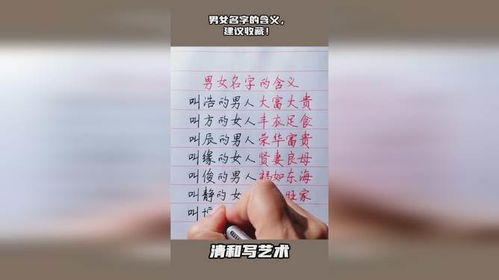 男女名字的含义，
建议收藏！
男女名字的含义
叫浩的男人大富大贵
叫方的女人丰衣足食
叫辰的男人荣华富贵
叫缘的女人贤妻良母
叫俊的男人福如东海
叫静的女 旺家
叫
清和写艺术